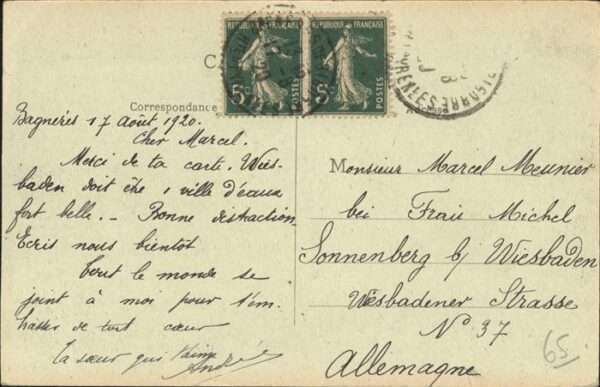 RÉPUBLIQUE FRANÇAISE
RÉPUBLIQUE FRANÇAISE
5c
5c
POSTES
POSTES
C
Correspondance
Bagnères 17 août 1920.
Cher Marcel.
Merci de ta carte. Wies-
baden doit être 1 ville d'eaux
fort belle. - Bonne distraction
Ecris nous bientôt
Tout le monde se
joint à moi pour t'em
brasser de tout cœur
Ta sœur qui t'aime
Andrée
Monsieur Marcel Meunier
bei Frau Michel
Sonnenberg b/ Wiesbaden
Wiesbadener Strasse
N° 37
Allemagne
65